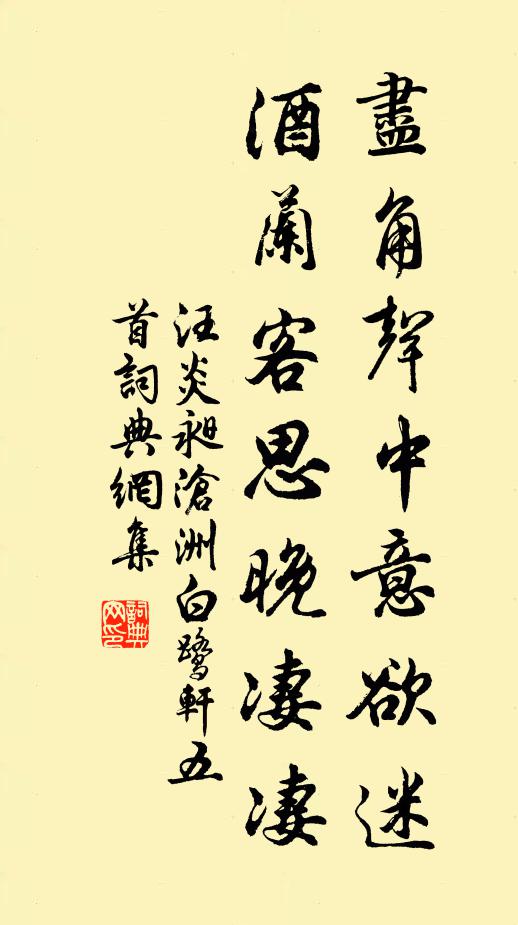 盡角聲中意欲迷
酒蘭客思晚凄凄
汪炎昶滄洲白鷺軒五
首詞典網集
詞典網印